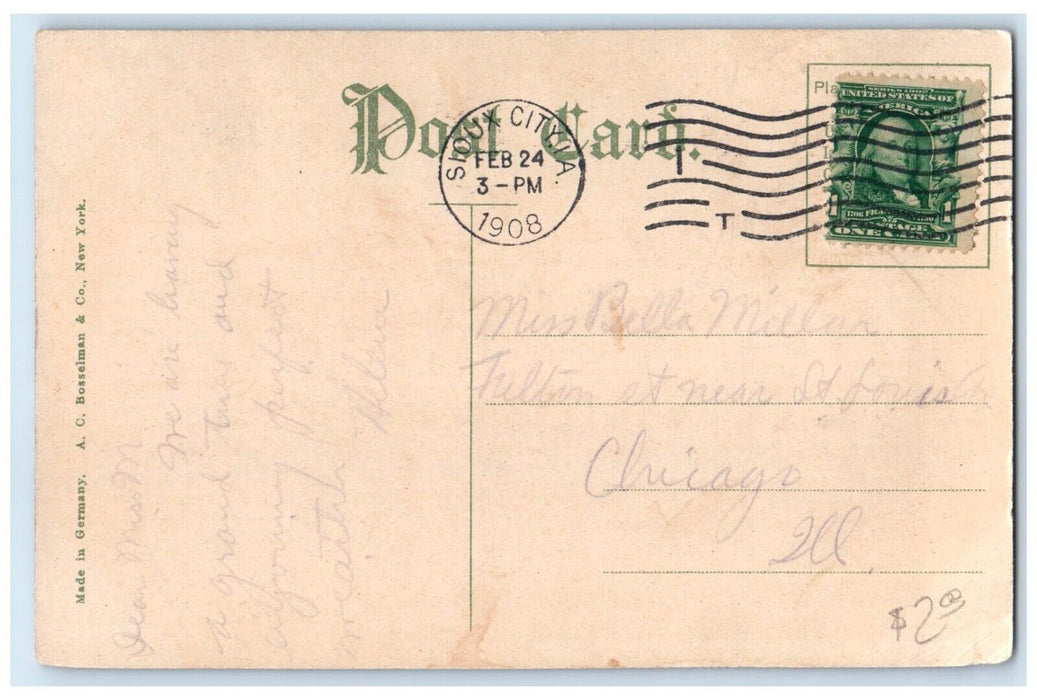 Post Card.
SIOUX CITY, IA.
FEB 24
3-PM
1908
T
Pla
SERIES 1902
UNITED STATES OF
AMERICA
1 1
1706 FRANKLIN 1790
POSTAGE
ONE CENT
Made in Germany. A. C. Bosselman & Co., New York.
Dear Miss M
We are having
a grand time and
enjoying perfect
weather
Helena
Miss Bella Millar
Fulton st near St Louis
Chicago
Ill
$2.00